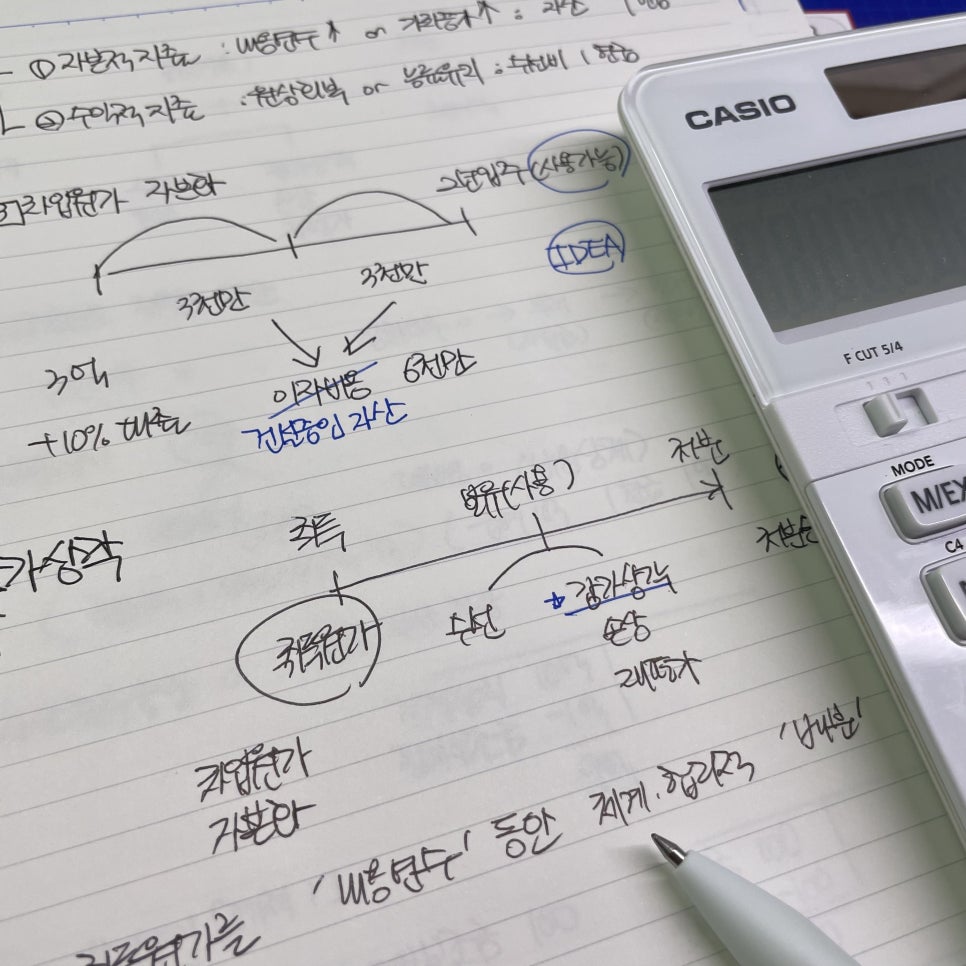 ① 자본적지출 : 내용연수↑ or 가치증가↑ : 자산
② 수익적지출 : 원상회복 or 능률유지 : 수선비
차입원가 자본화
2년입주(사용가능)
IDEA
3천만 3천만
이자비용 6천만
건설중인 자산
3억
+10% 대출
CASIO
F CUT 5/4
MODE
M/EX
가상각
취득 보유(사용) 처분
취득원가 수선 감가상각
손상
재평가
차입원가
자본화
취득원가를 '내용연수' 동안 체계·합리적 '배분'